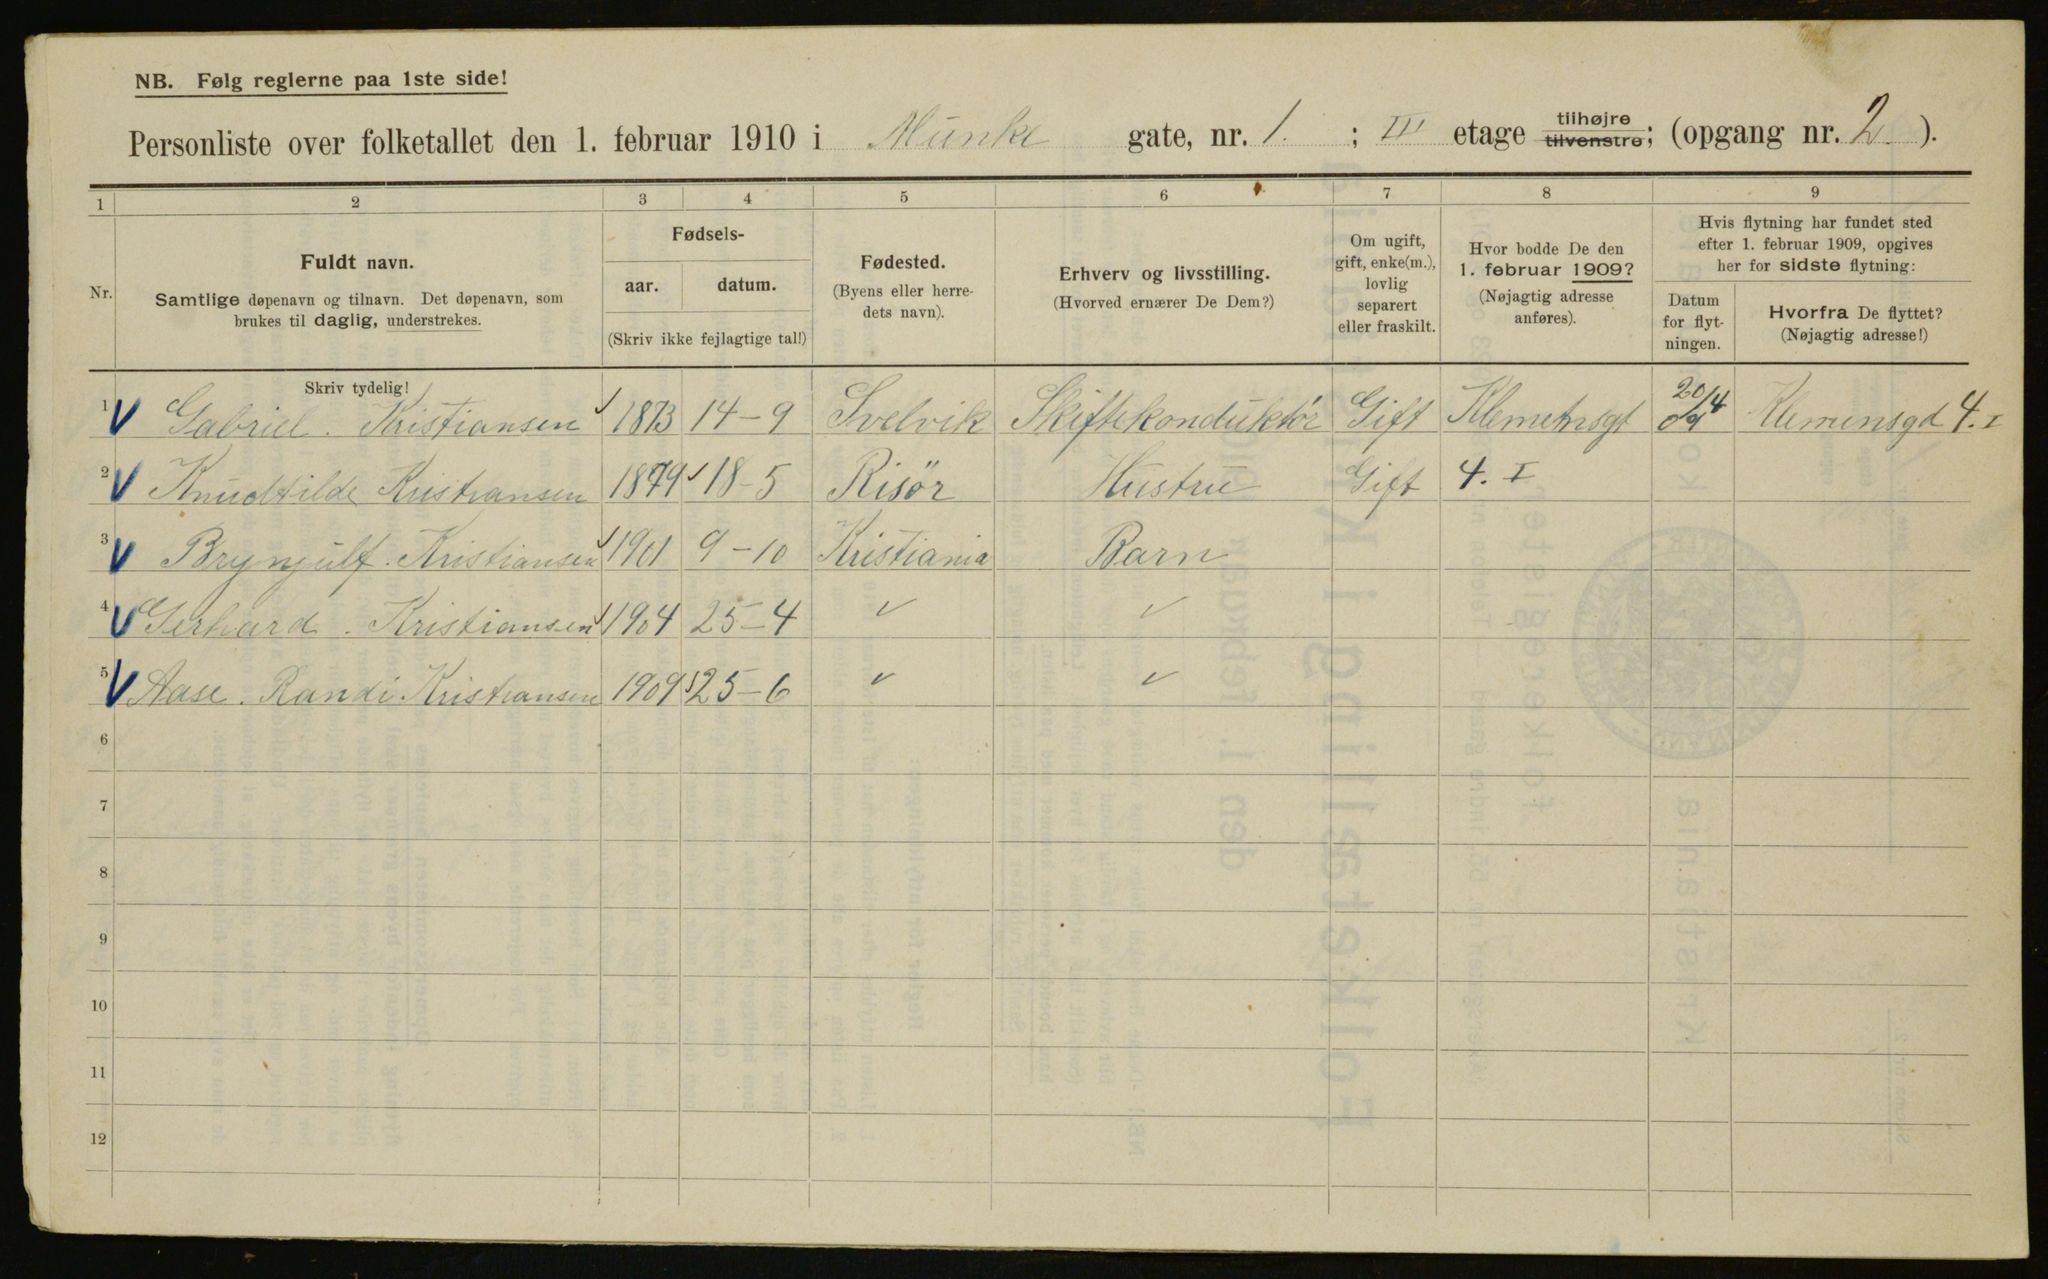 NB. Følg reglerne paa 1ste side!
Personliste over folketallet den 1. februar 1910 i Munke gate, nr. 1. ; III etage tilhøjre tilvenstre; (opgang nr. 2. ).
1 2 3 4 5 6 7 8 9
Nr.
Fuldt navn.
Samtlige døpenavn og tilnavn. Det døpenavn, som
brukes til daglig, understrekes.
Fødsels-
aar. datum.
(Skriv ikke fejlagtige tal!)
Fødested.
(Byens eller herre-
dets navn).
Erhverv og livsstilling.
(Hvorved ernærer De Dem?)
Om ugift,
gift, enke(m.),
lovlig
separert
eller fraskilt.
Hvor bodde De den
1. februar 1909?
(Nøjagtig adresse
anføres).
Hvis flytning har fundet sted
efter 1. februar 1909, opgives
her for sidste flytning:
Datum
for flyt-
ningen.
Hvorfra De flyttet?
(Nøjagtig adresse!)
Skriv tydelig!
1 Gabriel. Kristiansen 1873 14-9 Svelvik Skiftekonduktør Gift Klemetnsgt 20/4 09 Klemensgd 4. I
2 Knudtilde Kristiansen 1879 18-5 Risör Hustru Gift 4. I
3 Brynjulf. Kristiansen 1901 9-10 Kristiania Barn
4 Gerhard. Kristiansen 1904 25-4 ✓ ✓
5 Aase. Randi Kristiansen 1909 25-6 ✓ ✓
6
7
8
9
10
11
12